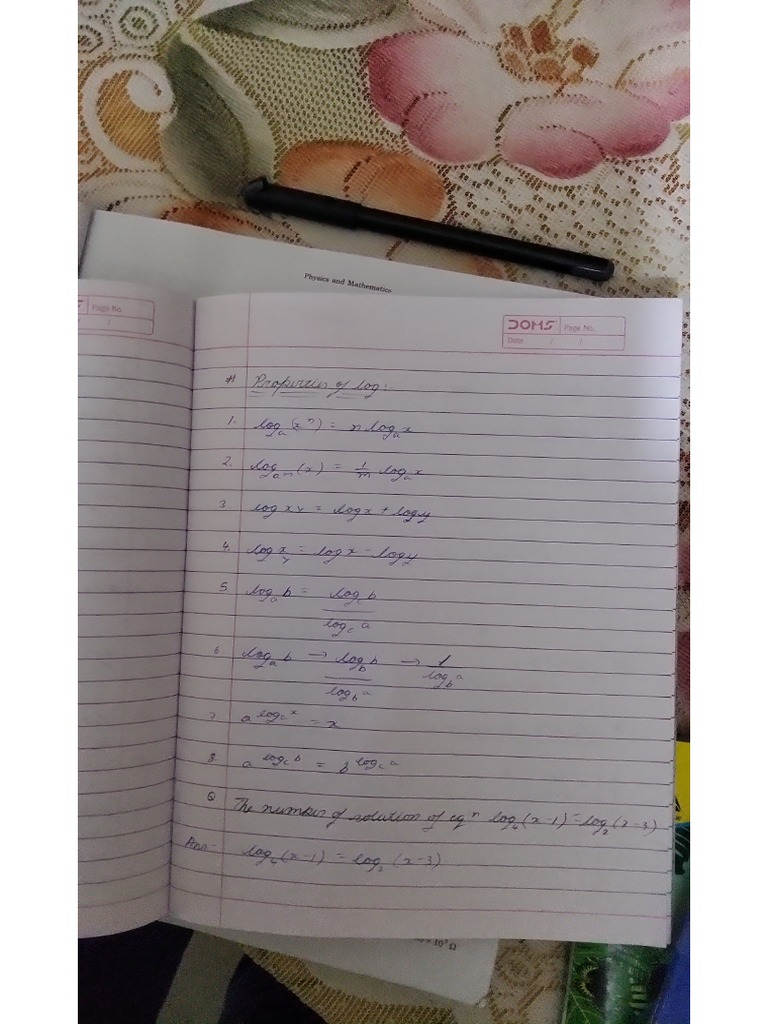 Physics and Mathematics
DOMS Page No.
Date / /
Page No.
/
# Properties of log:-
1. logₐ(xⁿ) = n logₐx
2. log_aᵐ(x) = 1/m logₐx
3 log xy = logx + logy
4. log x/y = logx - logy
5. logₐb = log_c b / log_c a
6 logₐb → log_b b / log_b a → 1 / log_b a
7. a^log x = x
8. a^log_c b = b^log_c a
Q The number of solution of eqⁿ log₄(x-1) = log₂(x-3)
Ans- log₄(x-1) = log₂(x-3)